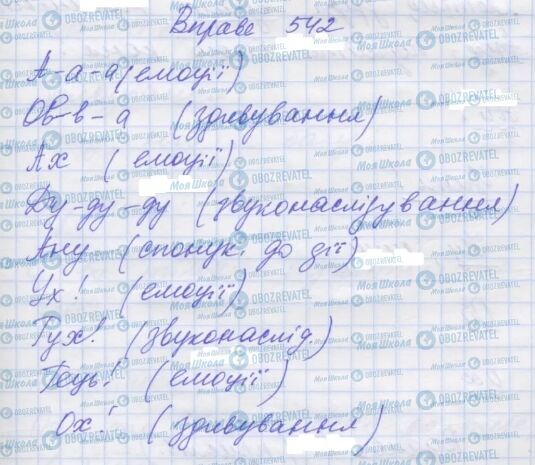 Вправе 542
А-а-а (емоції)
Ов-в-а (здивування)
Ах (емоції)
Ду-ду-ду (звуконаслідування)
Ану (спонук. до дії)
Ух! (емоції)
Гух! (звуконаслід)
Геть! (емоції)
Ох! (здивування)